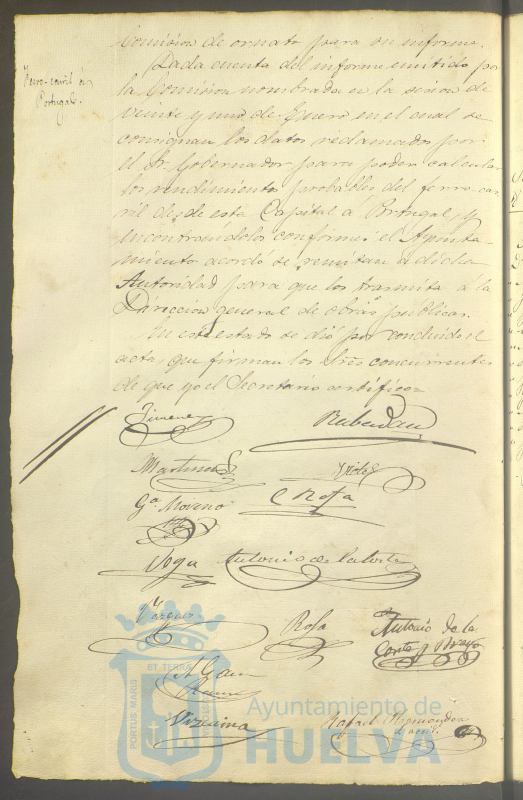 Comision de ornato para su informe.
Ferro-carril á
Portugal.
Dada cuenta del informe emitido por
la Comision nombrada en la sesion de
veinte y uno de Enero en el cual se
consignan los datos reclamados por
el Sr. Gobernador para poder calcular
los rendimientos probables del ferro-car-
ril desde esta Capital á Portugal, y
encontrandolos conformes el Ayunta-
miento acordó se remitan á dicha
Autoridad para que los trasmita á la
Direccion general de obras públicas.
En este estado se dió por concluido el
acta, que firman los Sres concurrentes
de que yo el Secretario certifico=
Jimenez
Martinez
Ga. Moreno
C Rosa
Antonio de la Corte
Vazquez
Rosa
Antonio de la
Corte y Bravo
Vizcaina
Rafael Hernandez
ET TERRÆ
PORTUS MARIS
Ayuntamiento de
HUELVA